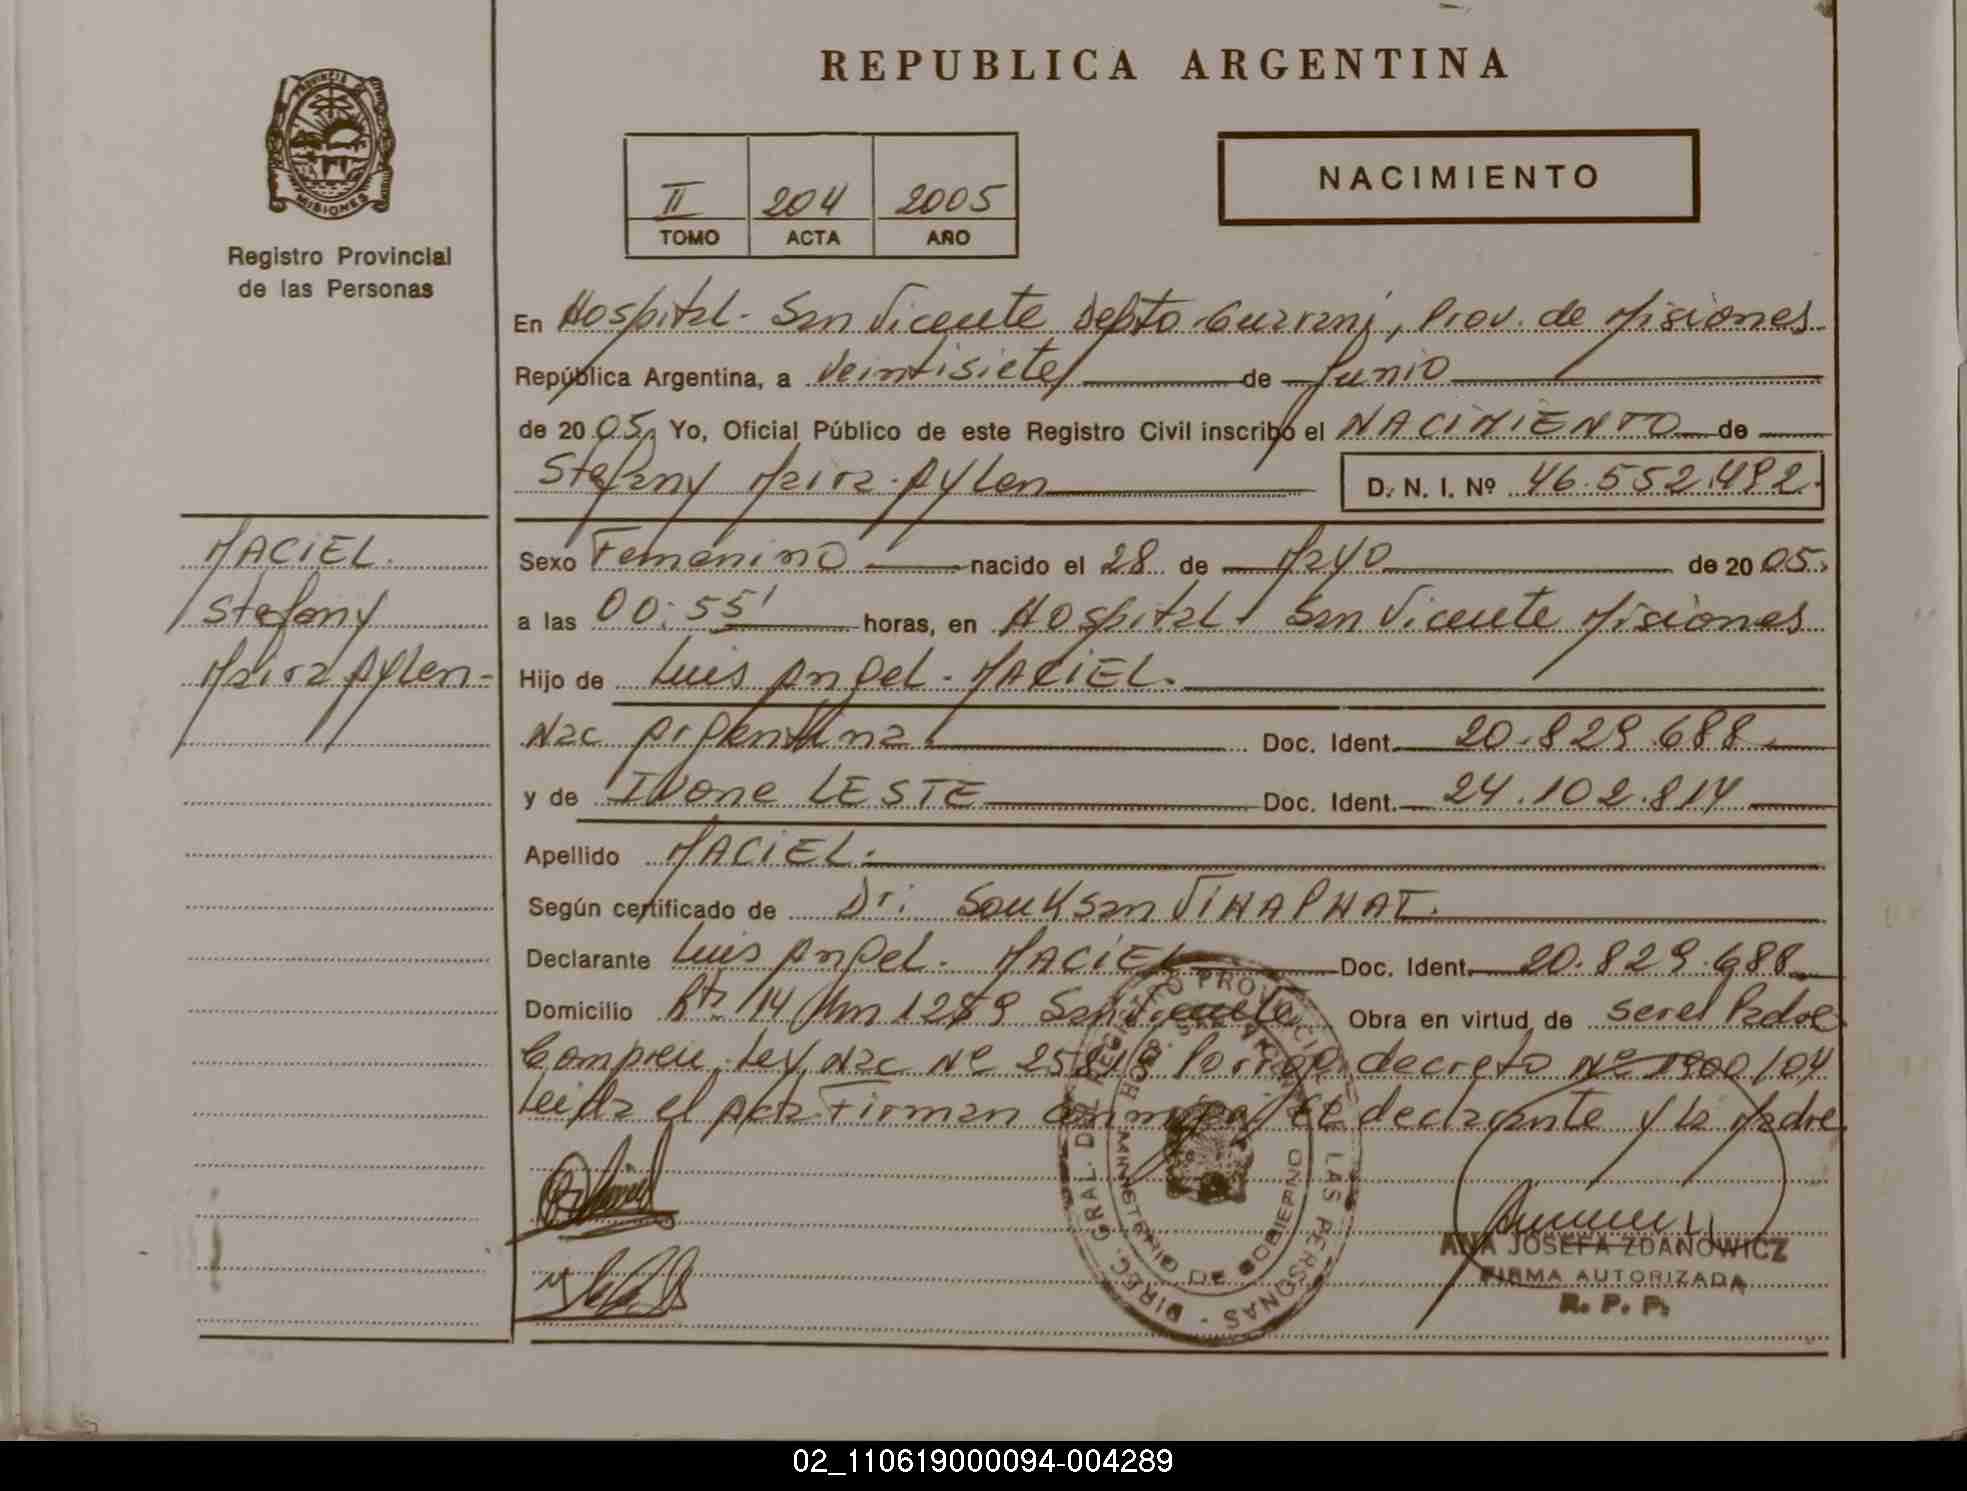 REPUBLICA ARGENTINA
PROVINCIA DE
MISIONES
Registro Provincial
de las Personas
II 204 2005
TOMO ACTA AÑO
NACIMIENTO
En Hospital - San Vicente Depto Guarani, Prov. de Misiones
República Argentina, a Veintisiete de Junio
de 2005, Yo, Oficial Público de este Registro Civil inscribo el NACIMIENTO de
Stefany Maira Aylen D. N. I. Nº 46.552.492.
MACIEL.
Stefany
Maira Aylen -
Sexo Femenino nacido el 28 de Mayo de 2005.
a las 00:55' horas, en Hospital San Vicente Misiones
Hijo de Luis Angel - MACIEL.
Nac Argentina Doc. Ident. 20.829.688
y de IVone LESTE Doc. Ident. 24.102.814
Apellido MACIEL.
Según certificado de Dr: Souksan VIHAPHAT.
Declarante Luis Angel. MACIEL Doc. Ident. 20.829.688
Domicilio Rta 14 Km 1289 San Vicente Obra en virtud de ser el Padre
Ley Nac Nº decreto Nº 1900/04
Leida el Acta Firman conmigo El declarante y la Madre
DIREC. GRAL. DEL REGISTRO PROVINCIAL DE LAS PERSONAS -
MINISTERIO DE GOBIERNO
ANA JOSEFA ZDANOWICZ
FIRMA AUTORIZADA
R. P. P.
02_110619000094-004289